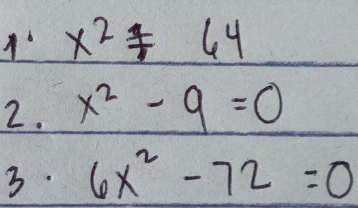 1. x² = 64
2. x² - 9 = 0
3. 6x² - 72 = 0